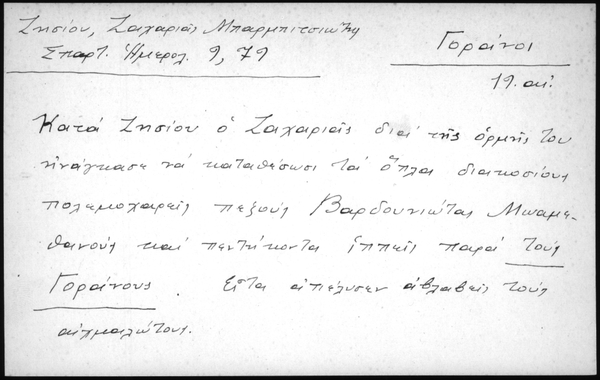 Ζησίου, Ζαχαριᾶς Μπαρμπιτσιώτης
Σπαρτ. Ἡμερολ. 9, 79
Γοράνοι
19. αἰ.
Κατά Ζησίου ὁ Ζαχαριᾶς διά τῆς ὁρμῆς του
ἠνάγκασε νά καταθέσωσι τά ὅπλα διακοσίους
πολεμοχαρεῖς πεζούς Βαρδουνιώτας Μωαμε-
θανούς καί πεντήκοντα ἱππεῖς παρά τούς
Γοράνους. Εἶτα ἀπέλυσεν ἀβλαβεῖς τούς
αἰχμαλώτους.